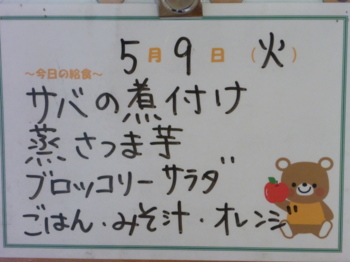 5月9日(火)
～今日の給食～
サバの煮付け
蒸さつま芋
ブロッコリーサラダ
ごはん・みそ汁・オレンジ